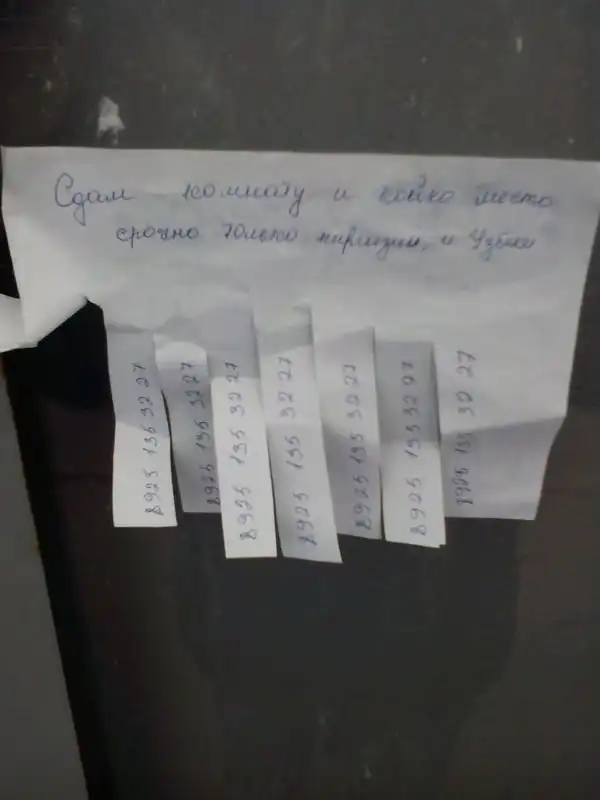 Сдам комнату и койко место
срочно только киргизы, и Узбеки
8925 135 32 27
8925 135 32 27
8925 135 32 27
8925 135 32 27
8925 135 32 27
8925 135 32 27
8925 135 32 27